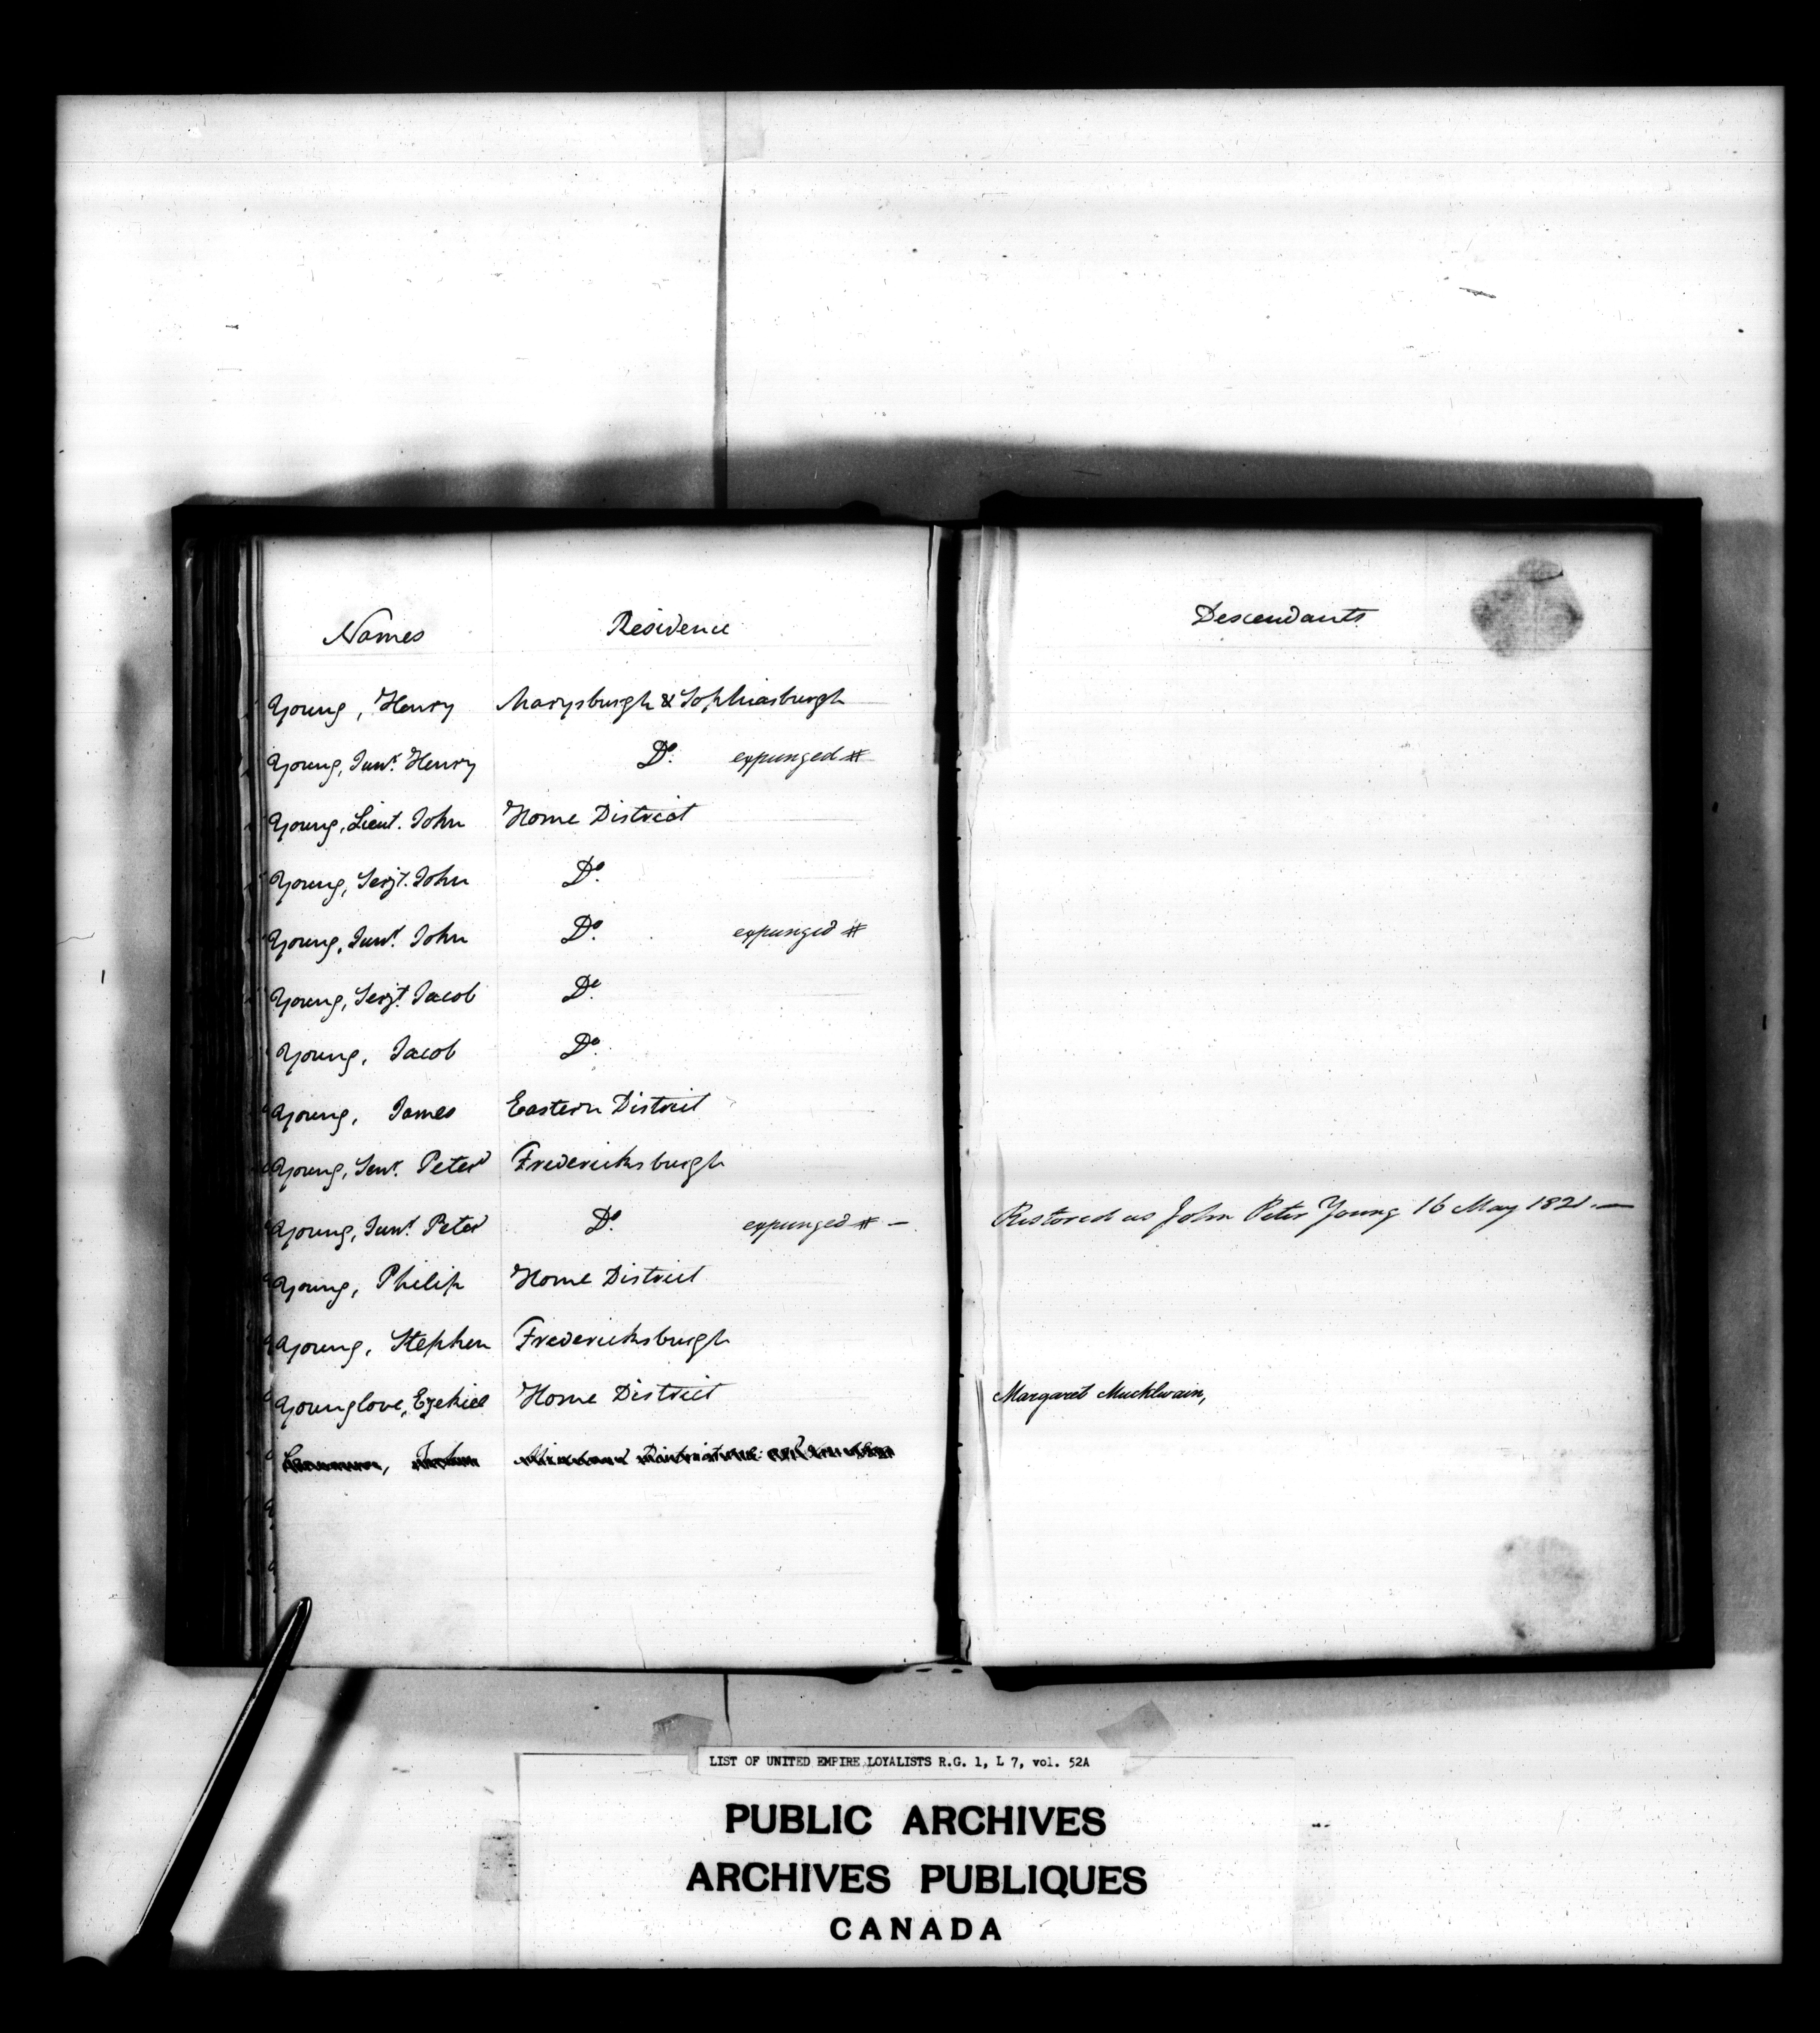 Names Residence Descendants
Young, Henry Marysburgh & Sophiasburgh
Young, Junr. Henry Do. expunged #
Young, Lieut. John Home District
Young, Serjt. John Do.
Young, Junr. John Do. expunged #
Young, Serjt. Jacob Do.
Young, Jacob Do.
Young, James Eastern District
Young, Senr. Peter Fredericksburgh
Young, Junr. Peter Do. expunged # — Restored as John Peter Young 16 May 1821.—
Young, Philip Home District
Young, Stephen Fredericksburgh
Younglove, Ezekiel Home District Margaret Mucklwain,
LIST OF UNITED EMPIRE LOYALISTS R.G. 1, L 7, vol. 52A
PUBLIC ARCHIVES
ARCHIVES PUBLIQUES
CANADA